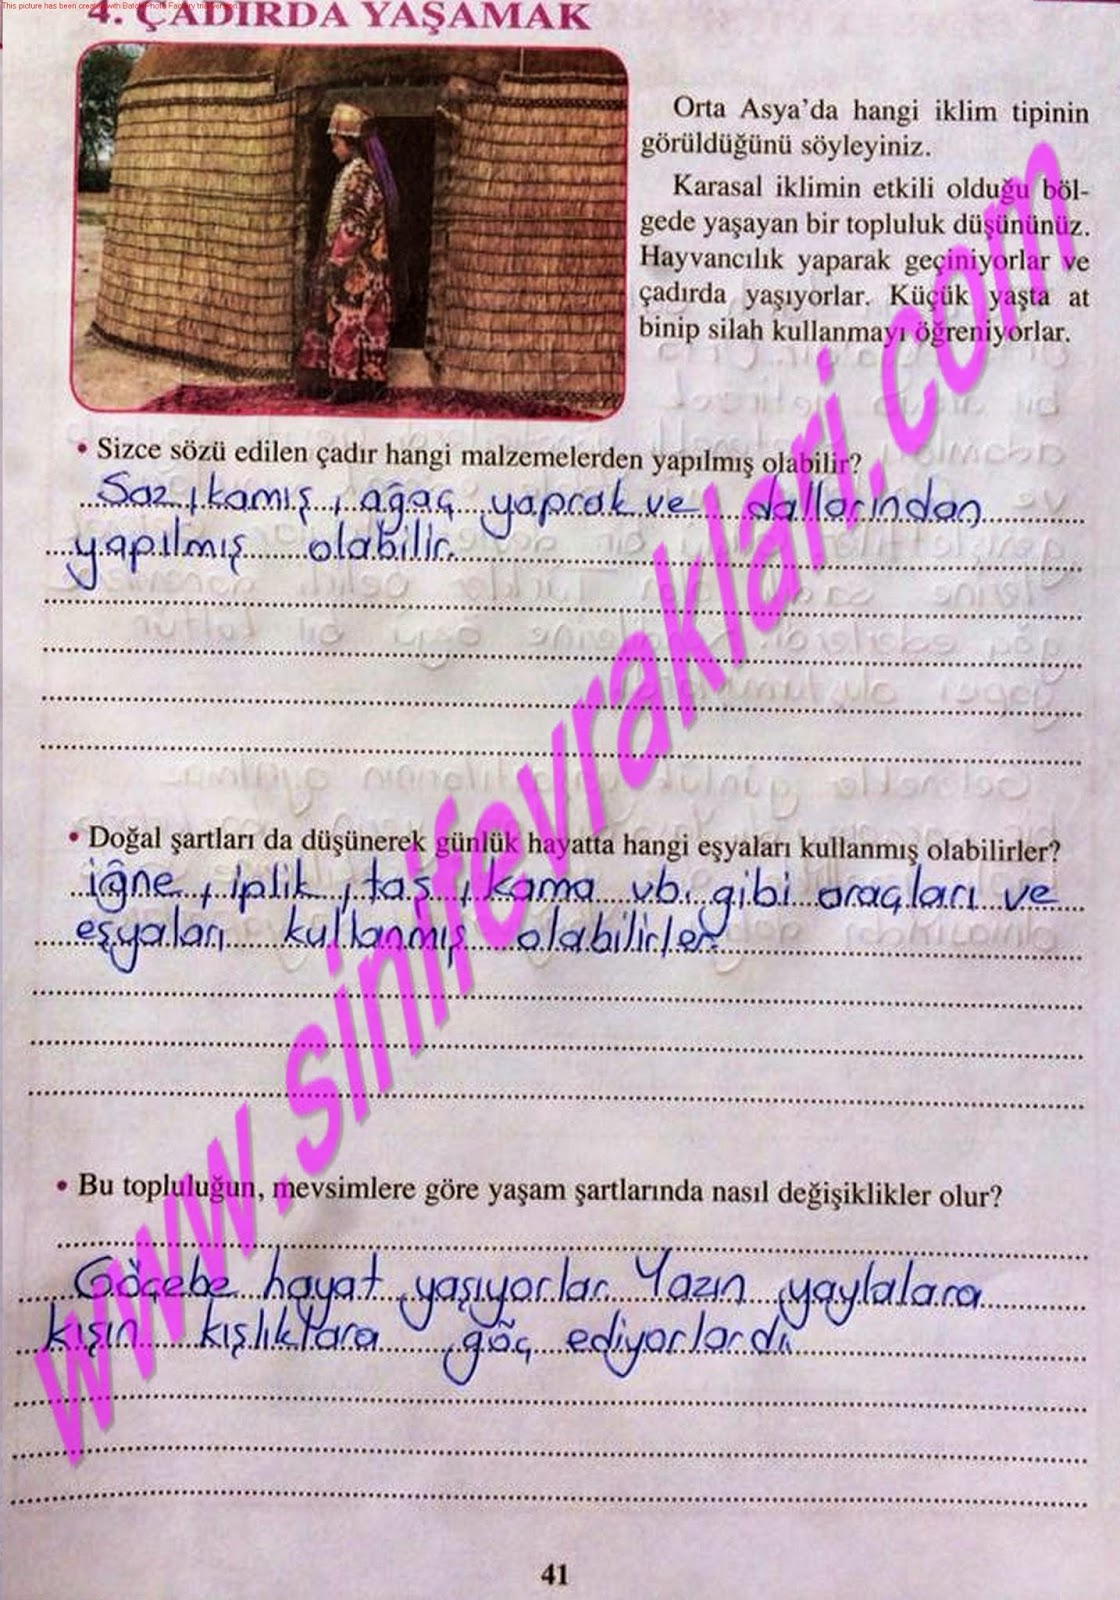 This picture has been created with Batch Photo Factory trial version.
4. ÇADIRDA YAŞAMAK
Orta Asya'da hangi iklim tipinin
görüldüğünü söyleyiniz.
Karasal iklimin etkili olduğu böl-
gede yaşayan bir topluluk düşününüz.
Hayvancılık yaparak geçiniyorlar ve
çadırda yaşıyorlar. Küçük yaşta at
binip silah kullanmayı öğreniyorlar.
• Sizce sözü edilen çadır hangi malzemelerden yapılmış olabilir?
Saz, kamış, ağaç yaprak ve dallarından
yapılmış olabilir.
• Doğal şartları da düşünerek günlük hayatta hangi eşyaları kullanmış olabilirler?
iğne, iplik, tas, kama vb. gibi araçları ve
eşyaları kullanmış olabilirler.
• Bu topluluğun, mevsimlere göre yaşam şartlarında nasıl değişiklikler olur?
Göçebe hayat yaşıyorlar. Yazın yaylalara
kışın kışlıklara göç ediyorlardı.
www.sinifevraklari.com
41